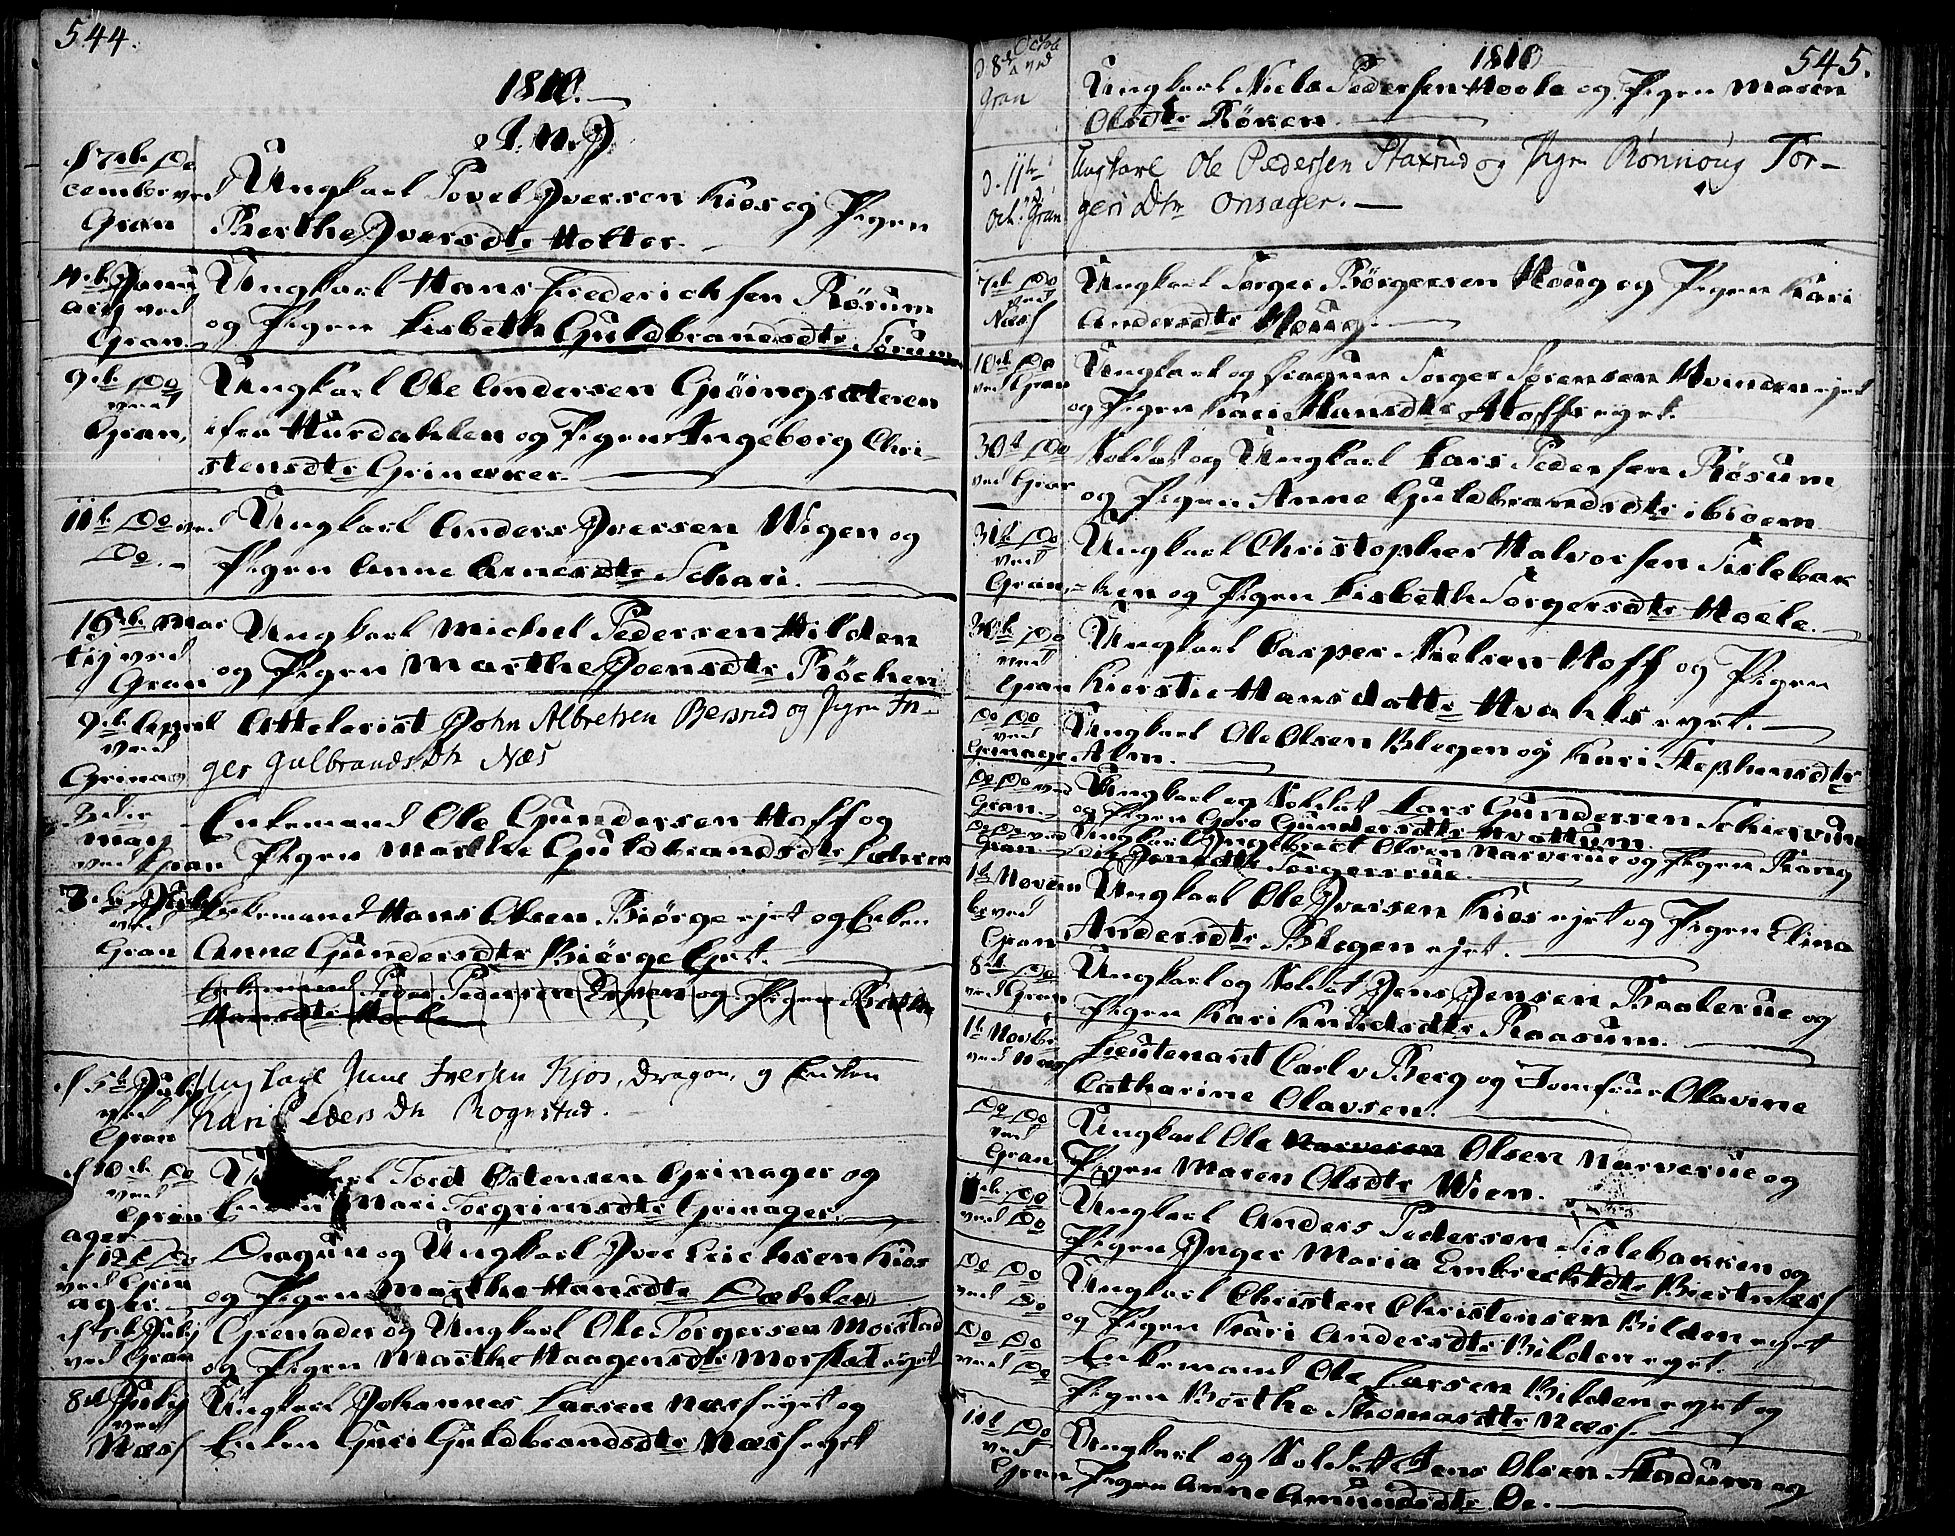 544.
1810.
I. N. J.
d 7de De
cember ved
Gran
Ungkarl Povel Iversen Kios og Pigen
Berthe Iversdtr Hotter.
4de Janu
arij ved
Gran
Ungkarl Hans Frederichsen Røsum
og Pigen Lisbeth Guldbrandsdtr Sørum
9de Do
ved
Gran,
Ungkarl Ole Andersen Grøingsæteren
ifra Hurdahlen og Pigen Ingeborg Chri-
stensdtr Grinaker.
11te Do ved
Do.
Ungkarl Anders Iversen Wigen og
Pigen Anne Arnesdtr Schari.
16de Mar
tij ved
Gran
Ungkarl Michel Pedersen Hilden
og Pigen Marthe Joensdtr Røchen
9de April
ved
Grinag
Attelerist John Albretsen Bersrud og Pigen In-
ger Gulbrands Dtr Næs
3die
May
ved Gran
Enkemand Ole Gundersen Hoff og
Pigen Marthe Guldbrandsdtr
July
ved
Gran
Enkemand Hans Olsen Biørge ejet og Enken
Anne Gundersdtr Biørge Eyet.
Enkemand Peder Pedersen og Pigen Berthe
Hansdtr
d 5te July
ved
Gran
Ungkarl Iver Iversen Kjos, Dragon, og Enken
Kari Peders Dtr Rognstad.
d 10de Do
ved
Grin
ager
Ungkarl Tord Østensen Grinager og
Enken Mari Torgrimsdtr Grinager.
d 12te Do
ved Grin
ager
Dragun og Ungkarl Iver Erichsen Kios
og Pigen Marthe Hansdtr Dæhlen
d 7de July
ved Gran
Grenader og Ungkarl Ole Torgersen Morstad
og Pigen Marthe Haagensdtr Morstad eyet
8de July
ved
Næss
Ungkarl Johannes Larsen Næss eyet og
Enken Guri Guldbrandsdtr Næss eyet
545.
1810
d. 8de Octob
ved
Gran
Ungkarl Niels Pedersen Hoele og Pigen Maren
Olsdtr Røken.
d. 11te
Oct. ved Gran
Ungkarl Ole Pedersen Staxrud og Pigen Rønnoug Tor-
geri Dtr Onsager.
7de Do
ved
Næss
Ungkarl Torger Børgersen Houg og Pigen Kari
Andersdtr Houg.
10de Do
ved Gran
Ungkarl og Dragun Torger Sørensen Hvinden ejet
og Pigen Kari Hansdtr Hoffs eyet.
30te Do
ved Gran
Soldat og Ungkarl Lars Pedersen Røsum
og Pigen Anne Guldbrandsdtr ibidem
31te Do
ved
Gran
Ungkarl Christopher Halvorsen Tislebak
ken og Pigen Lisbeth Torgersdtr Hoele.
30te Do
ved
Gran
Ungkarl Casper Nielsen Hoff og Pigen
Kierstie Hansdatter Hvahls eyet.
Do Do
ved
Grinager
Ungkarl Ole Olsen Blegen og Kari Stephensdtr
Alm.
Do Do ved
Gran
Ungkarl og Soldat Lars Gundersen Schiervum
og Pigen Goro Gundersdtr Hvattum
Do Do ved
Gran
Ungkarl Ingebret Olsen Narverue og Pigen Rang
Jensdtr Torgersrue.
1te Novem
ber ved
Gran
Ungkarl Ole Iversen Kios ejet og Pigen Elina
Andersdtr Blegen ejet.
8de Do
ved Gran
Ungkarl og Soldat Jens Jensen Raakerue og
Pigen Kari Knudsdtr Raasum.
1te Novbr
ved Næss
Lieutenant Carl v Berg og Jomfrue Olavine
Catharine Olavsen.
Do Do
ved
Gran
Ungkarl Ole Narvesen Olsen Narverue og
Pigen Maren Olsdtr Wien.
Do
ved Do
Ungkarl Anders Pedersen Tislebakken og
Pigen Inger Maria Embrechtdtr
Do Do
ved Do
Ungkarl Christen Christensen Bilden eyet
og Pigen Kari Andersdtr Bilden eyet.
Do Do
ved Do
Enkemand Ole Larsen Bilden eyet og
Pigen Berthe Thomasdtr Næss.
Do
ved
Gran
Ungkarl og Soldat Jens Olsen Stadum og
Pigen Anne Amundsdtr Do.